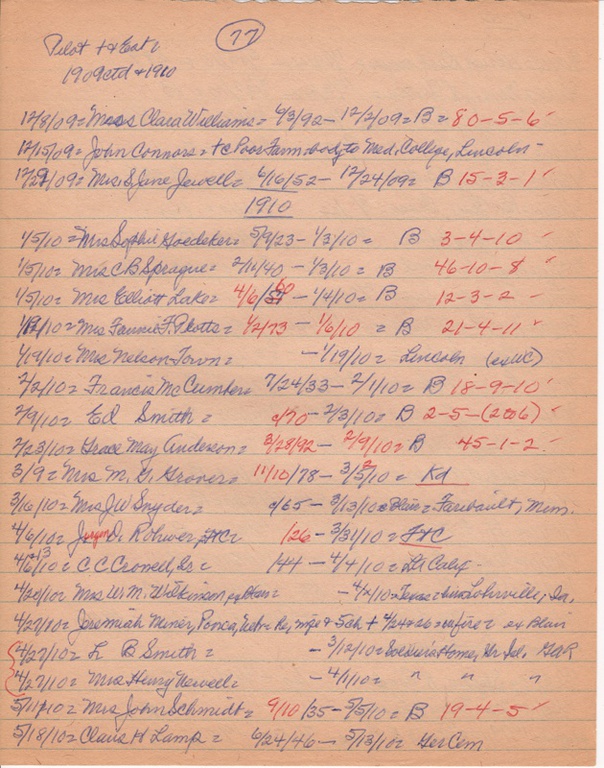 77
Pilot +
1909ctd + 1910
12/8/09 = Miss Clara Williams = 6/3/92 – 12/2/09 = B = 80-5-6 ✓
12/15/09 = John Connors = + c Poor Farm body to Med. College, Lincoln –
12/29/09 = Mrs S Jane Jewell = 6/16/52 – 12/24/09 = B 15-3-1 ✓
1910
1/5/10 = Mrs Sophie Goedeker = 5/9/23 – 1/3/10 = B 3-4-10 ✓
1/5/10 = Mrs C B Sprague = 2/11/40 – 1/3/10 = B 46-10-8 ✓
1/5/10 = Mrs Elliott Lake = 4/6/60 – 1/4/10 = B 12-3-2 ✓
/10 = Mrs Fannie F. Plotts = 1/2/73 – 1/6/10 = B 21-4-11 ✓
1/19/10 = Mrs Nelson Town = – 1/19/10 = Lincoln (ex WC)
2/2/10 = Francis McCumber = 7/24/33 – 2/1/10 = B 18-9-10 ✓
2/9/10 = Ed Smith = c/70 – 2/3/10 = B 2-5-(2to6) ✓
2/23/10 = Grace May Anderson = 3/28/92 – 2/9/10 = B 45-1-2 ✓
3/9 = Mrs M. G. Grover = 11/10/78 – 3/ /10 = Kd
3/16/10 = Mrs J W Snyder = c/65 – 3/13/10 = Blair = Faribault, Minn.
4/6/10 = Jurgen D. Rohwer, = /26 – 3/31/10 = FtC
4/13/10 = C C Crowell, Sr = /44 – 4/4/10 = Lt Calif –
4/20/10 = Mrs W. M. Wilkinson, = – /10 = Texas = Lohrville, Ia.
4/27/10 = Jeremiah Miner, Ponca, Nebr Re, wife & 5 ch + 4/24&26 = = ex Blair
4/27/10 = L B Smith = – 3/12/10 = Soldiers Home, Gr Isl. GAR
4/27/10 = Mrs Henry Newell = – 4/1/10 = " " "
5/11/10 = Mrs John Schmidt = 9/10/35 – 5/5/10 = B 19-4-5 ✓
5/18/10 = Claus H Lamp = 6/24/46 – 5/13/10 = Ger Cem